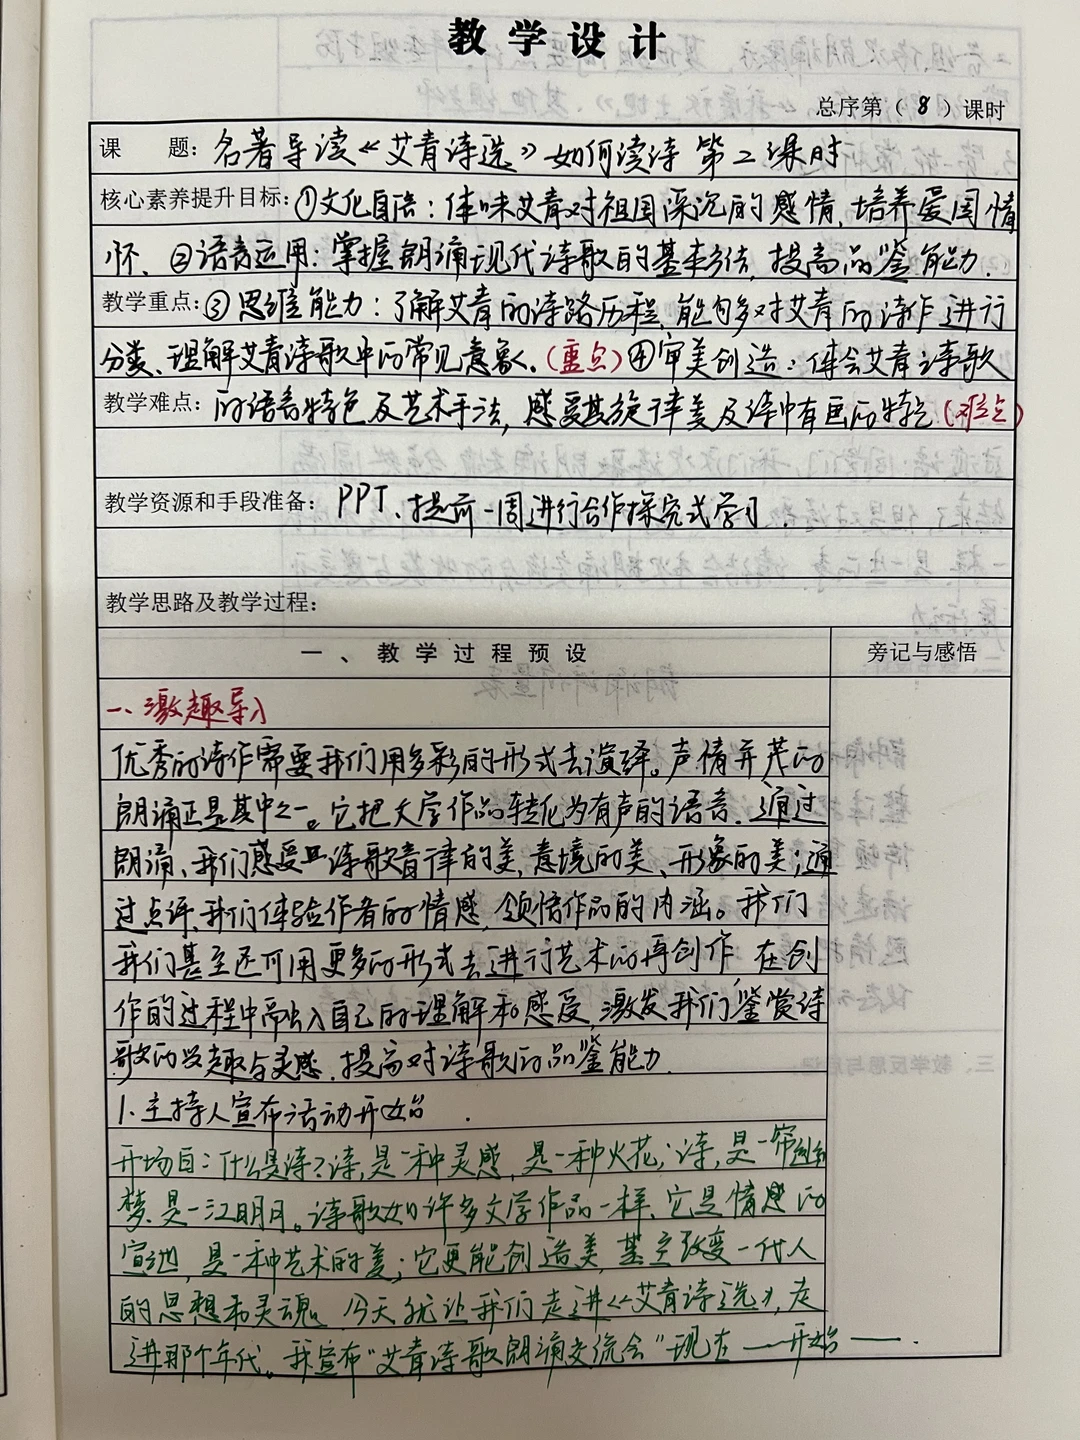 教学设计
总序第（8）课时
课 题：名著导读《艾青诗选》如何读诗 第2课时
核心素养提升目标：①文化自信：体味艾青对祖国深沉的感情，培养爱国情
怀、②语言运用：掌握朗诵现代诗歌的基本方法，提高品鉴能力.
教学重点：③思维能力：了解艾青的诗路历程，能够对艾青的诗作进行
分类、理解艾青诗歌中的常见意象。(重点)④审美创造：体会艾青诗歌
教学难点：的语言特色及艺术手法，感受其旋律美及诗中有画的特色(难点)
教学资源和手段准备：PPT、提前一周进行合作探究式学习
教学思路及教学过程：
一、教学过程预设 旁记与感悟
一、激趣导入
优秀的诗作需要我们用多彩的形式去演绎。声情并茂的
朗诵正是其中之一。它把文学作品转化为有声的语言.通过
朗诵、我们感受诗歌音律的美，意境的美、形象的美；通
过点评、我们体验作者的情感，领悟作品的内涵。我们
我们甚至还可用更多的形式去进行艺术的再创作 在创
作的过程中融入自己的理解和感受，激发我们鉴赏诗
歌的兴趣与灵感.提高对诗歌的品鉴能力.
1.主持人宣布活动开始.
开场白：什么是诗？诗，是一种灵感，是一种火花；诗，是一帘幽
梦.是一江明月。诗歌如许多文学作品一样、它是情感的
宣泄，是一种艺术的美；它更能创造美，甚至改变一代人
的思想和灵魂。今天就让我们走进《艾青诗选》，走
进那个年代。我宣布"艾青诗歌朗诵交流会"现在——开始——.